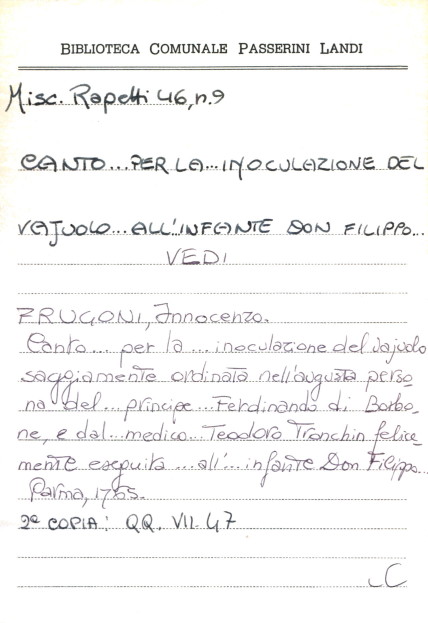 BIBLIOTECA COMUNALE PASSERINI LANDI
Misc. Rapetti 46, n.9
CANTO... PER LA... INOCULAZIONE DEL
VAJUOLO... ALL'INFANTE DON FILIPPO...
VEDI
FRUGONI, Innocenzo.
Canto... per la... inoculazione del vajuolo
saggiamente ordinata nell'augusta perso_
na del... principe... Ferdinando di Borbo_
ne, e dal... medico... Teodoro Tronchin felice_
mente eseguita... all'... infante Don Filippo...
Parma, 1765.
2ª COPIA: QQ. VII. 47
LC